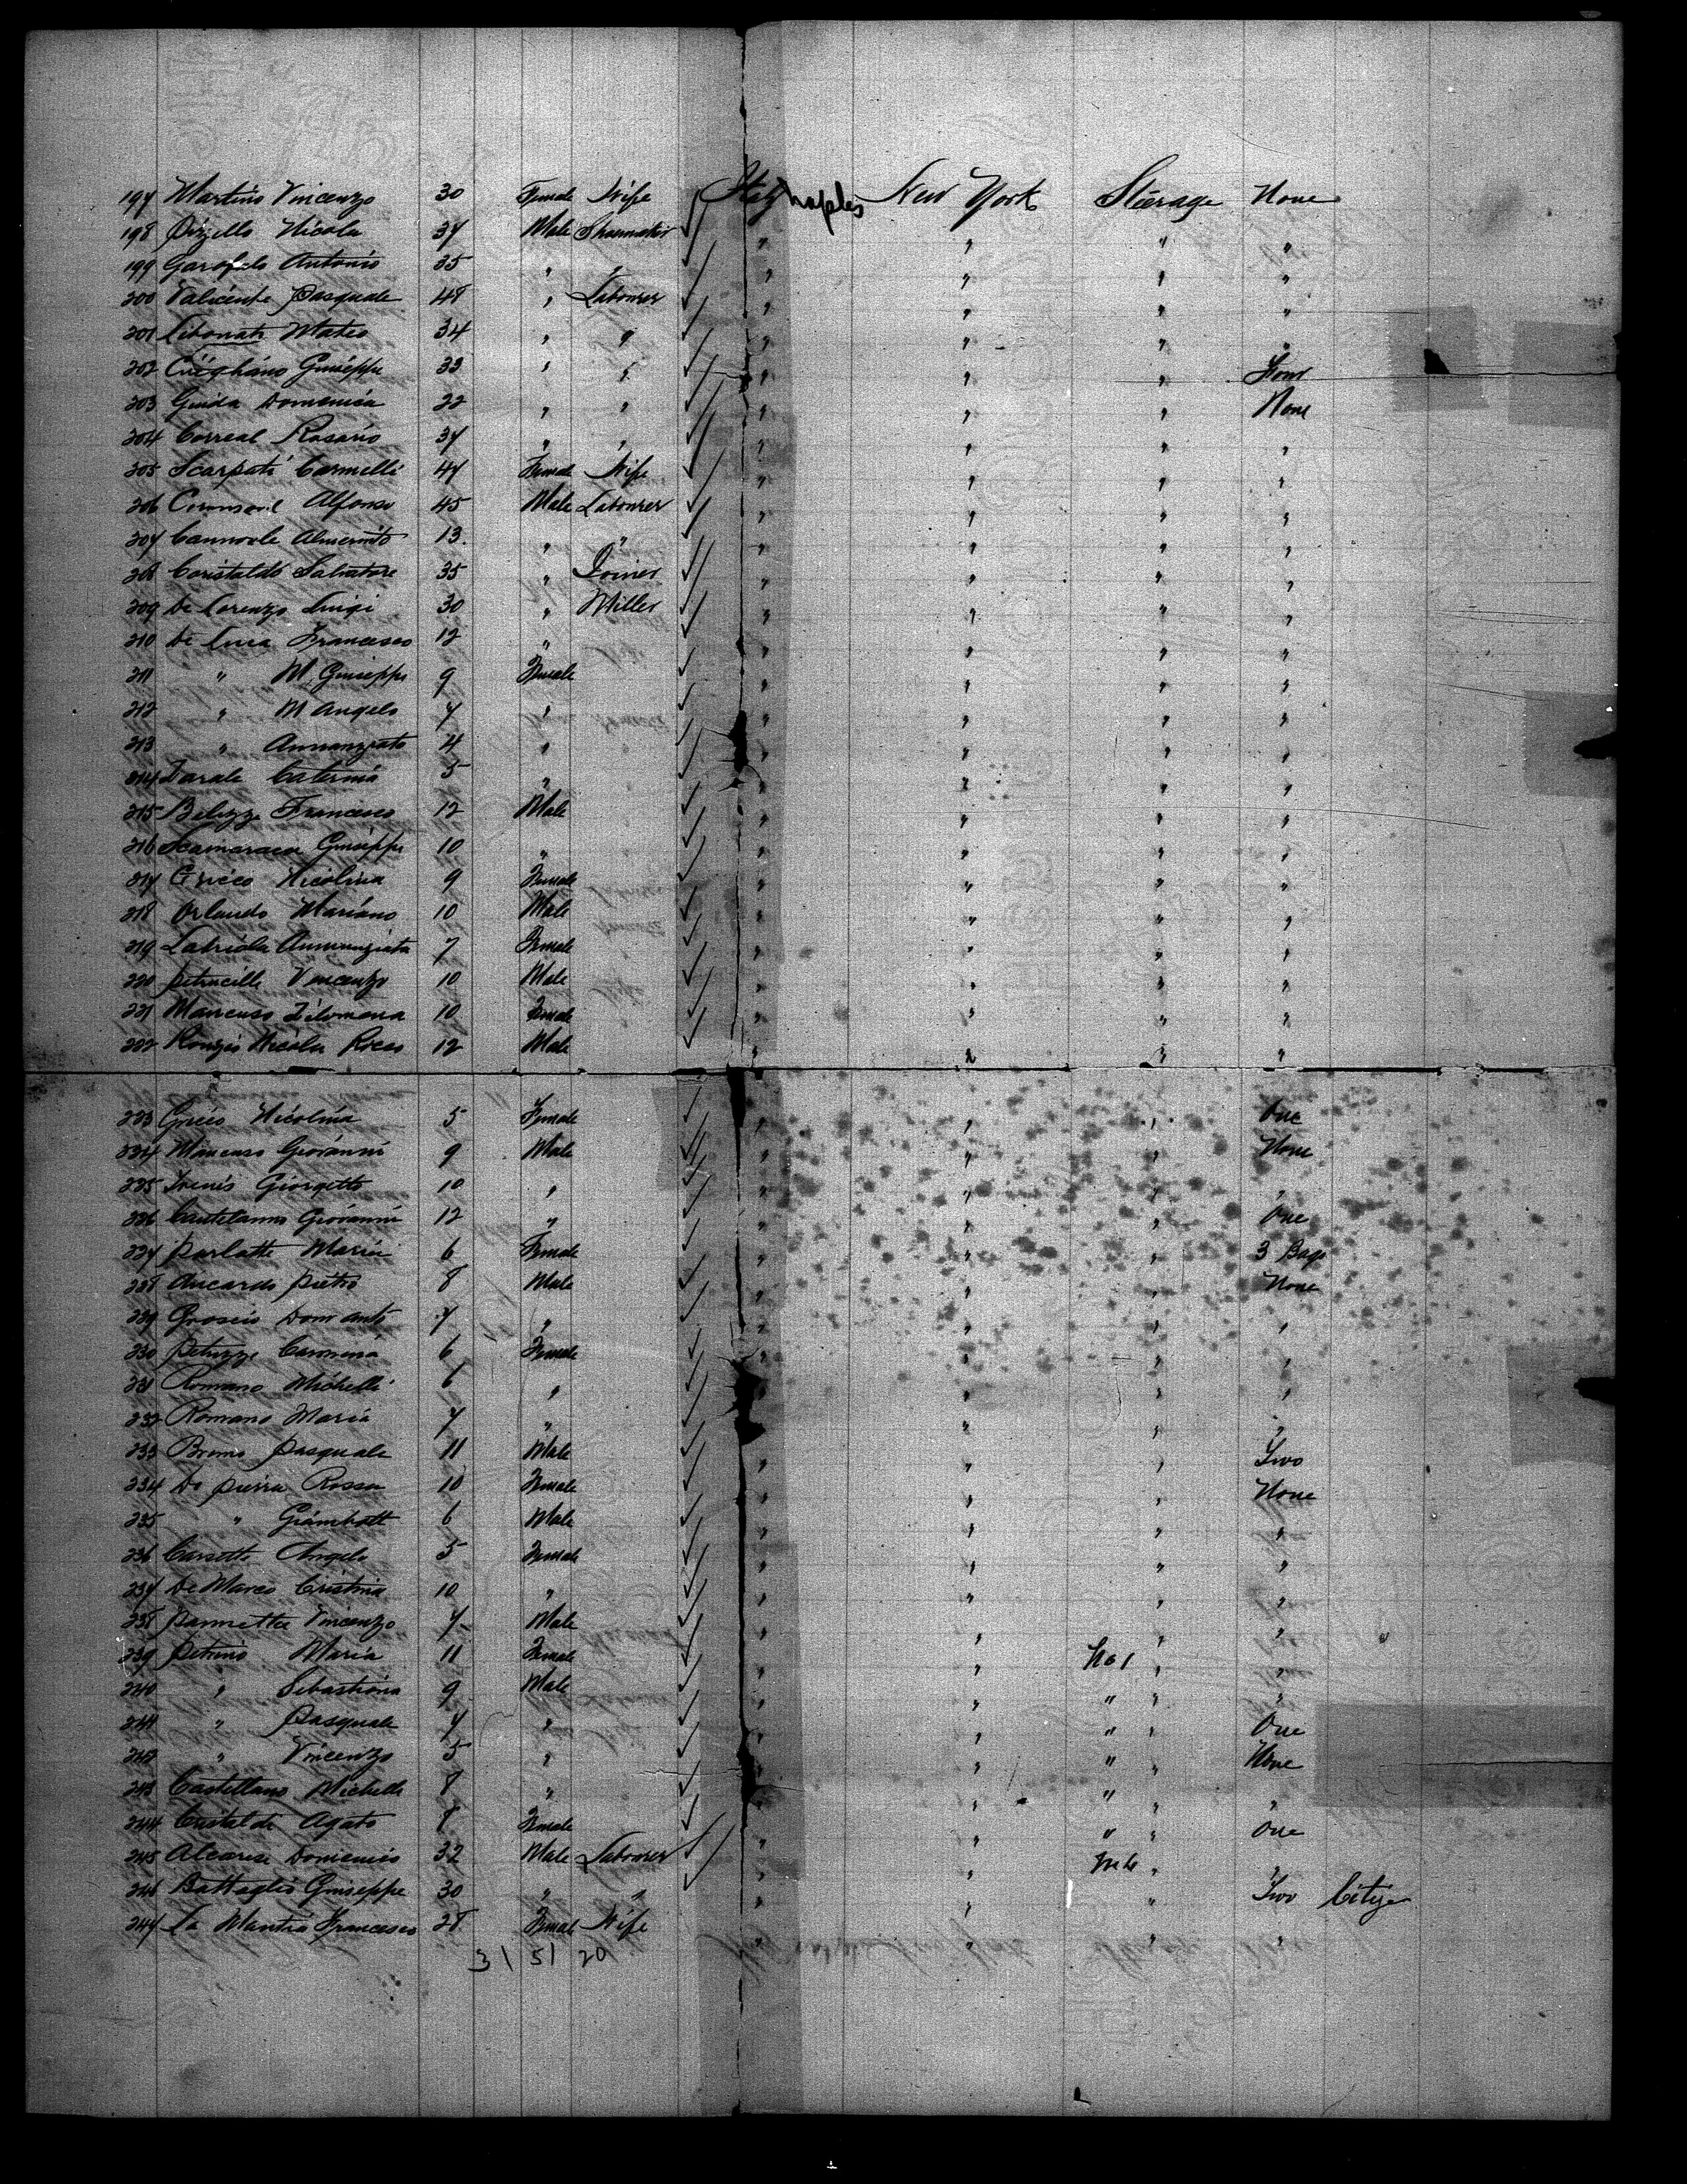 197 Martino Vincenzo 30 Female Wife Italy Naples New York Steerage None
198 Pizzello Nicola 37 Male Shoemaker " " " "
199 Garofalo Antonio 35 " " " " " "
200 Valicente Pasquale 48 " Labourer " " " "
201 Libonati Mateo 34 " " " " " "
202 Giuseppe 33 " " " " " Four
203 Guida Domenica 22 " " " " " None
204 Correal Rosario 37 " " " " " "
205 Scarpati Carmelli 47 Female Wife " " " "
206 Alfonso 45 Male Labourer " " " "
207 13 " " " " " "
208 Caristaldo Salvatore 35 " Joiner " " " "
209 De Lorenzo Luigi 30 " Miller " " " "
210 De Luca Francesco 12 " " " " "
211 " M. Giuseppe 9 Female " " " "
212 " M Angelo 7 " " " " "
213 " Annunziato 4 " " " " "
214 Caterina 5 " " " " "
215 Belizze Francisco 12 Male " " " "
216 Scamaraca Giuseppe 10 " " " " "
217 Grieco Nicolina 9 Female " " " "
218 Orlando Mariano 10 Male " " " "
219 Labriola Annunziata 7 Female " " " "
220 Petrucelli Vincenzo 10 Male " " " "
221 Mancuso Filomena 10 Female " " " "
222 Nicola Rocco 12 Male " " " "
223 Grieco Nicolina 5 Female " " " One
224 Mancuso Giovanni 9 Male " " " None
225 Giorgetto 10 " " " " "
226 Giovanni 12 " " " " One
227 Parlatte Maria 6 Female " " " 3 Bags
228 Pietro 8 Male " " " None
229 Groscio Dom ant 7 " " " " "
230 Petuzze 6 Female " " " "
231 Romano Michelli 6 " " " " "
232 Romano Maria 7 " " " " "
233 Bruno Pasquale 11 Male " " " Two
234 De Pierra Rossa 10 Female " " " None
235 " Giambatt 6 Male " " " "
236 Carsette Angelo 5 Female " " " "
237 De Marco Cristina 10 " " " " "
238 Pannetta Vincenzo 7 Male " " " "
239 Petrino Maria 11 Female " " No 1 " "
240 " Sebastiona 9 Male " " " " "
241 " Pasquale 7 " " " " " One
242 " Vincenzo 5 " " " " " None
243 Castellano Michelle 8 " " " " " "
244 Cristalde Agato 8 Female " " " " One
245 Alcarese Domenico 32 Male Labourer " " " "
246 Battaglia Giuseppe 30 " " " " " " Two Citize
247 La Mantia Francesco 28 Female Wife " " " "
31 51 20